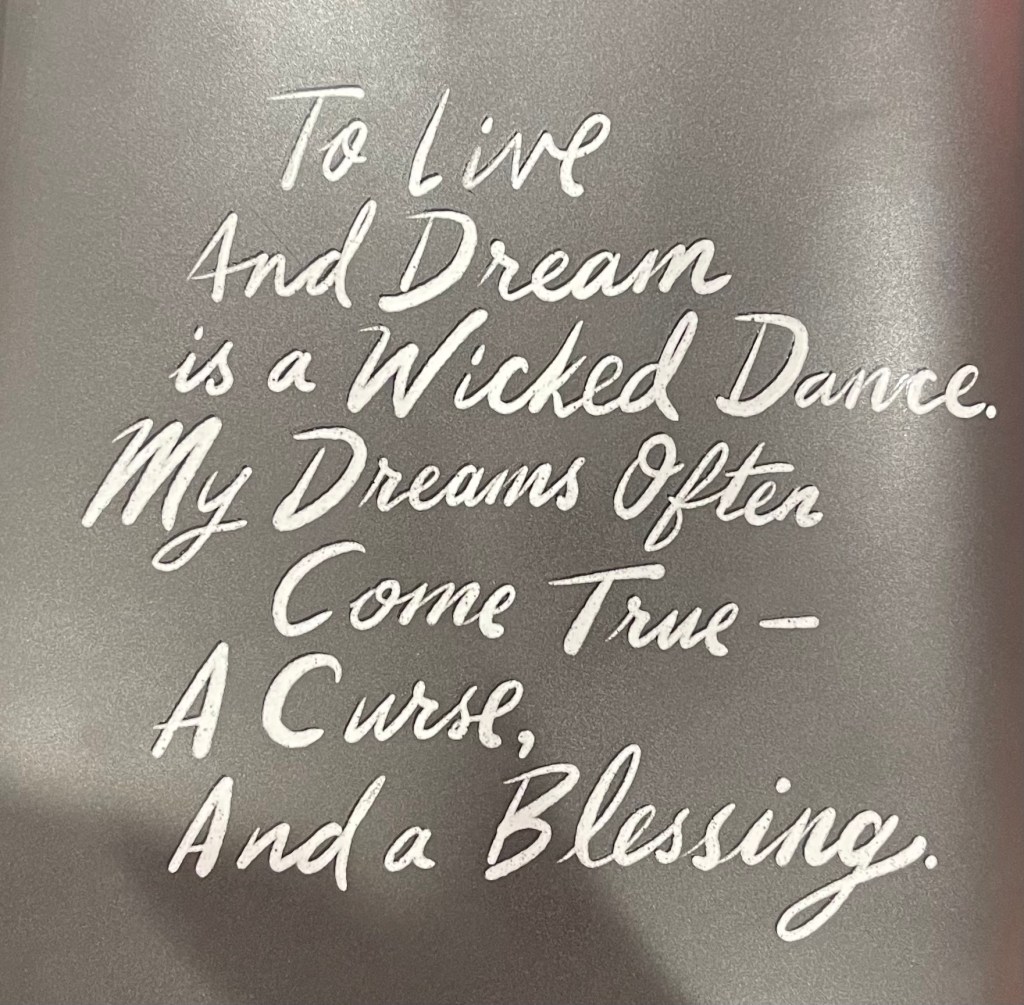 To Live
And Dream
is a Wicked Dance.
My Dreams Often
Come True—
A Curse,
And a Blessing.